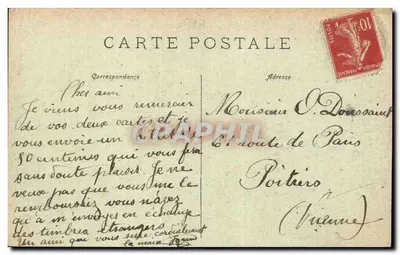 CARTE POSTALE
Correspondance
Adresse
Cher ami
Je viens vous remercier
de vos deux cartes et je
vous envoie un
50 centimes qui vous fera
sans doute plaisir. Je ne
veux pas que vous me le
remboursiez vous n'avez
qu'à m'envoyer en échange
des timbres étrangers
Un ami que vous serre cordialement
la main
Monsieur O. Doussaint
61 route de Paris
Poitiers
(Vienne)
10
POSTES
CARTHAPHIL